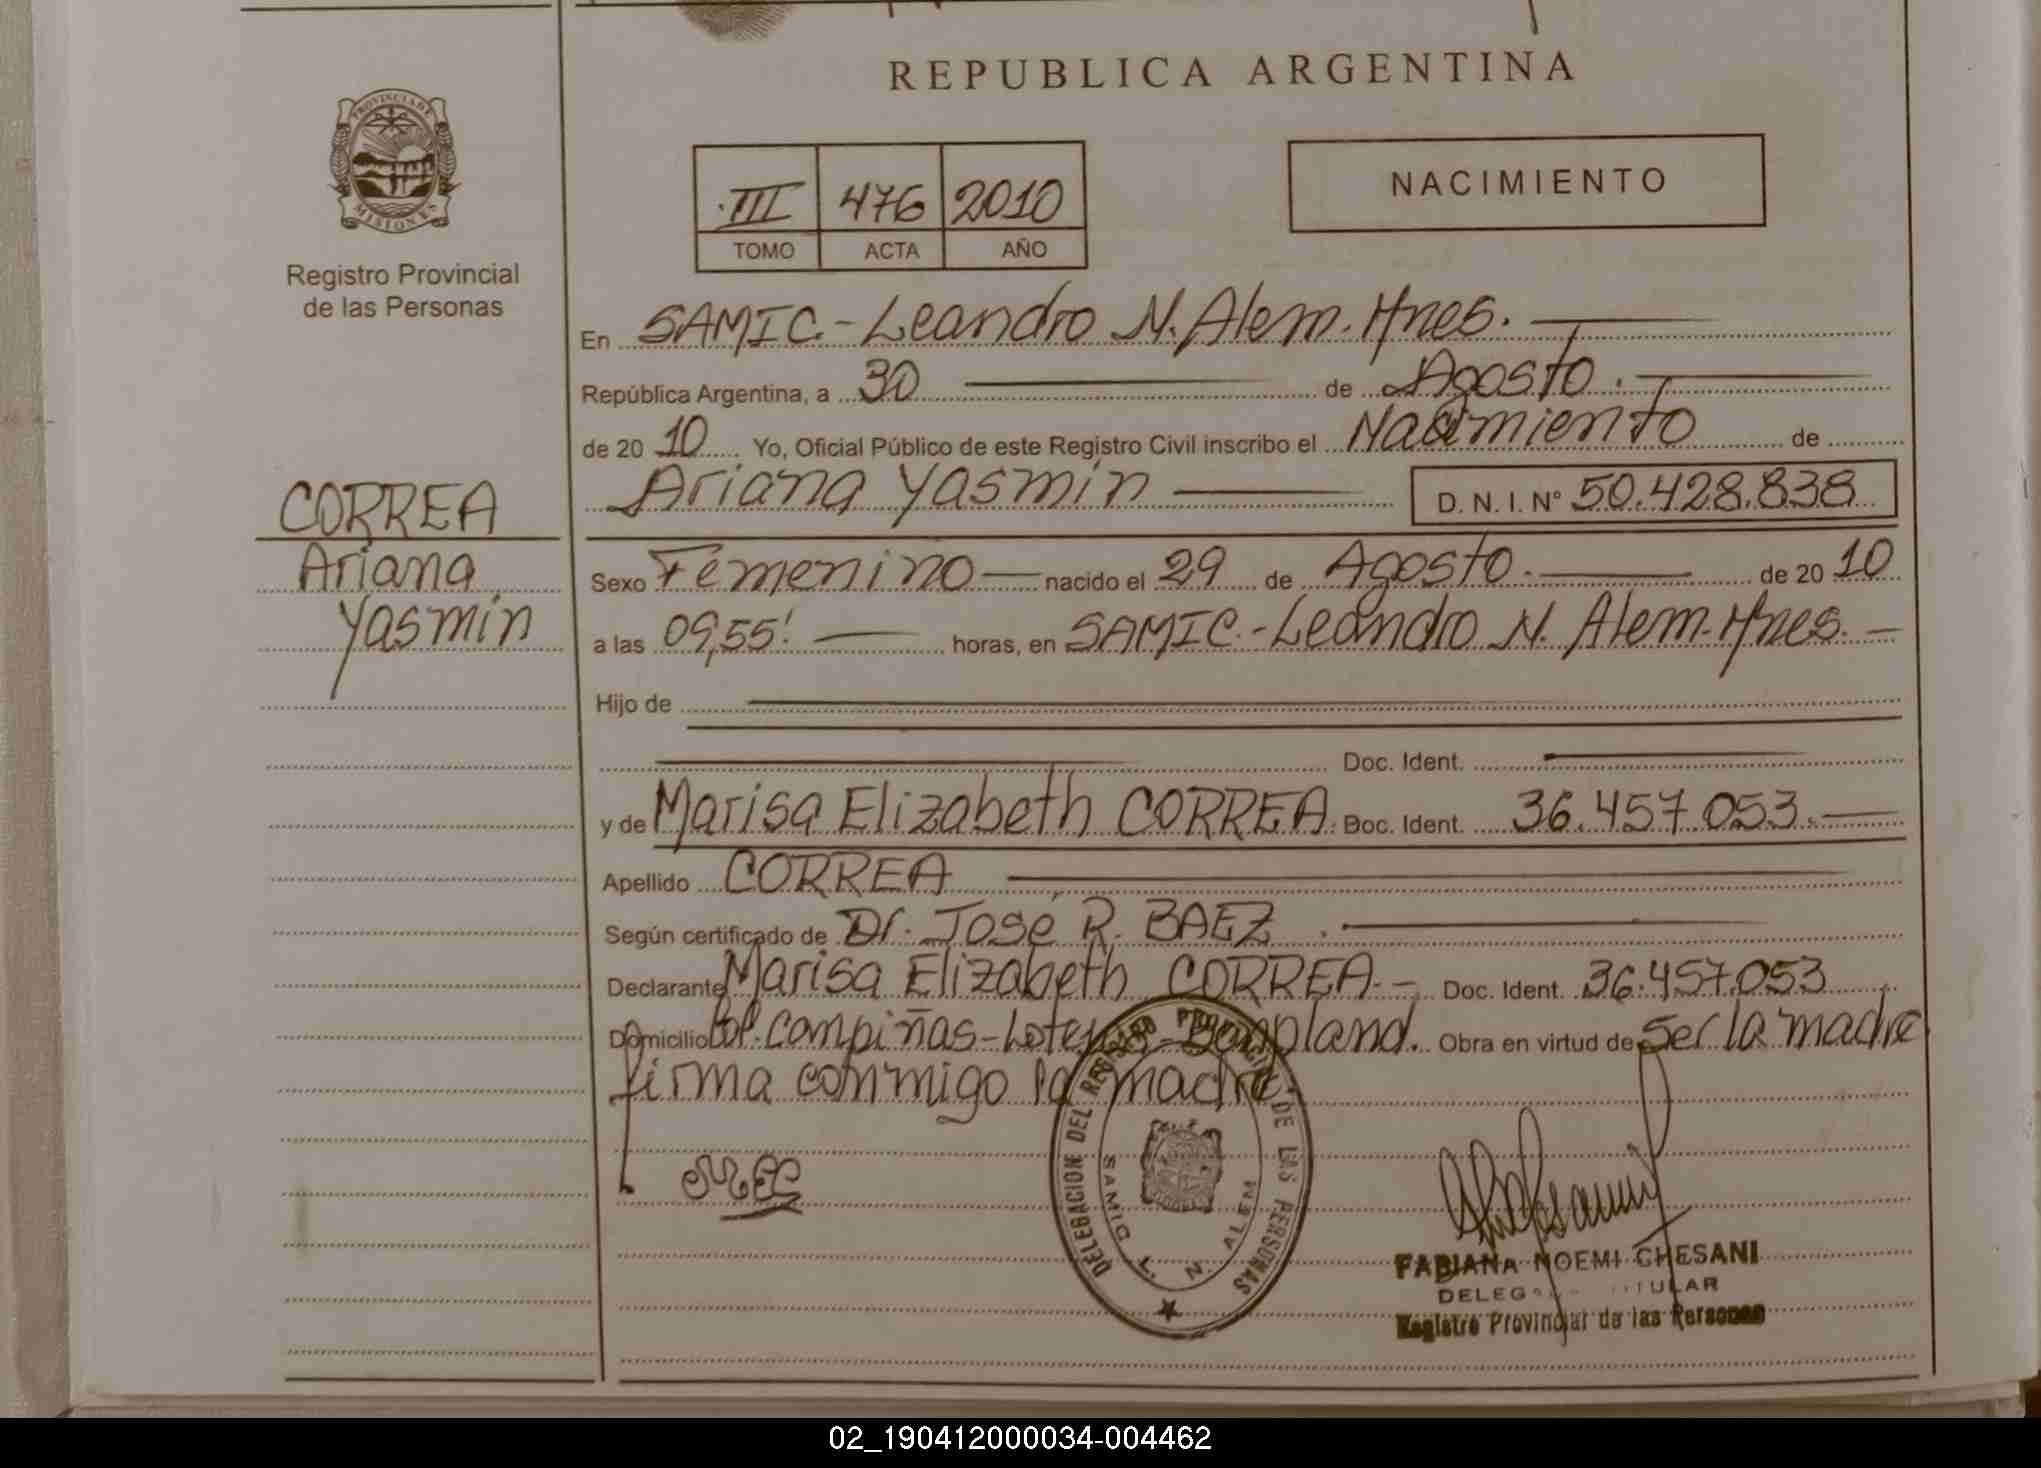 REPUBLICA ARGENTINA
PROVINCIA DE
MISIONES
Registro Provincial
de las Personas
III 476 2010
TOMO ACTA AÑO
NACIMIENTO
En SAMIC.-Leandro N. Alem. Mnes.
República Argentina, a 30 de Agosto.
de 20 10 Yo, Oficial Público de este Registro Civil inscribo el Nacimiento de
Ariana Yasmín D. N. I. Nº 50.428.838
CORREA
Ariana
Yasmín
Sexo Femenino nacido el 29 de Agosto. de 20 10
a las 09,55! horas, en SAMIC.-Leandro N. Alem. Mnes.
Hijo de
Doc. Ident.
y de Marisa Elizabeth CORREA. Doc. Ident. 36.457.053.
Apellido CORREA
Según certificado de Dr. José R. BAEZ.
Declarante Marisa Elizabeth CORREA.- Doc. Ident. 36.457.053
Domicilio Col. Campiñas- Bonpland. Obra en virtud de Ser la madre
firma conmigo la madre.
MEC
DELEGACION DEL REGISTRO PROVINCIAL DE LAS PERSONAS
SAMIC L. N. ALEM
FABIANA NOEMI CHESANI
Registro Provincial de las Personas
02_190412000034-004462